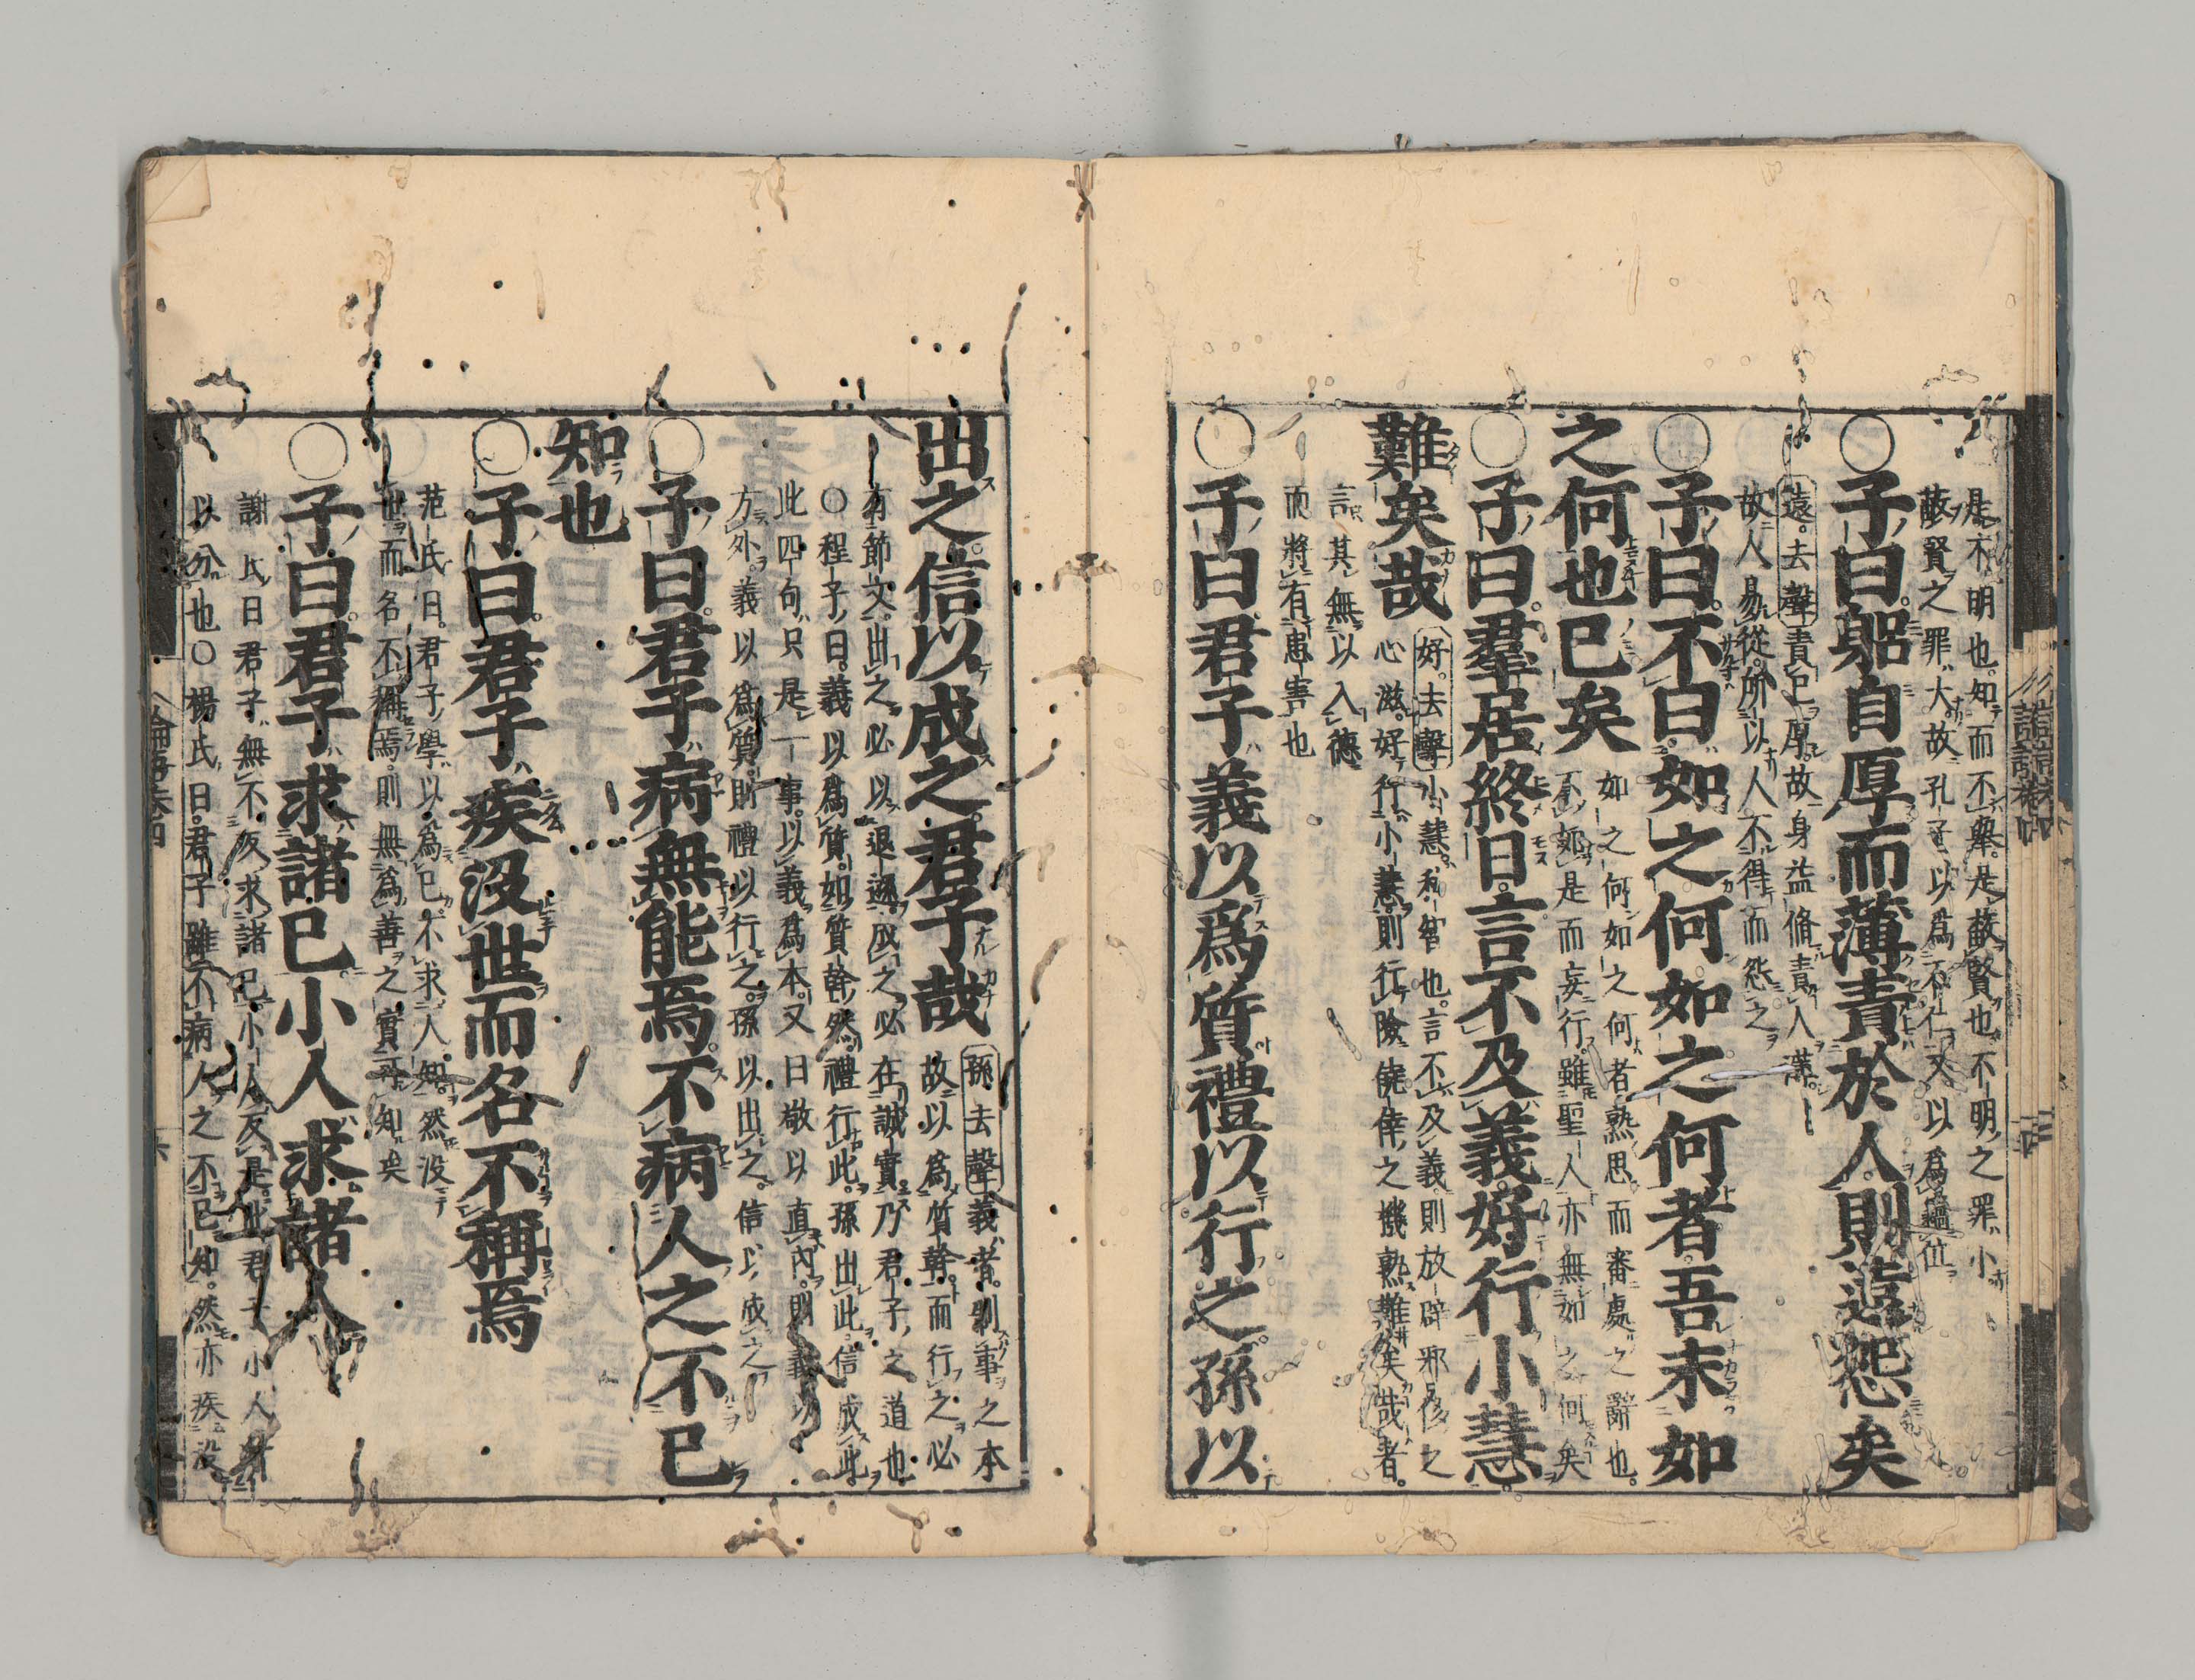 是不明也知而不擧是蔽賢也不明之罪小
蔽賢之罪大故孔子以爲不仁又以爲竊位
○子曰躬自厚而薄責於人則遠怨矣
遠去聲責已厚故身益脩責人薄
故人易從所以人不得而怨之
○子曰不曰如之何如之何者吾末如
之何也已矣
如之何如之何者熟思而審處之辭也
不如是而妄行雖聖人亦無如之何矣
○子曰羣居終日言不及義好行小慧
難矣哉
好去聲小慧私智也言不及義則放辟邪侈之
心滋好行小慧則行險僥倖之機熟難矣哉者
言其無以入德
而將有患害也
○子曰君子義以爲質禮以行之孫以
出之信以成之君子哉
孫去聲義者制事之本
故以爲質幹而行之必
有節文出之必以退遜成之必在誠實乃君子之道也
○程子曰義以爲質如質幹然禮行此孫出此信成此
此四句只是一事以義爲本又曰敬以直內則義以
方外義以爲質則禮以行之孫以出之信以成之
○子曰君子病無能焉不病人之不已
知也
○子曰君子疾沒世而名不稱焉
范氏曰君子學以爲已不求人知然沒
世而名不稱焉則無爲善之實可知矣
○子曰君子求諸已小人求諸人
謝氏曰君子無不反求諸已小人反是此君子小人
以分也○楊氏曰君子雖不病人之不已知然亦疾沒
論語卷四